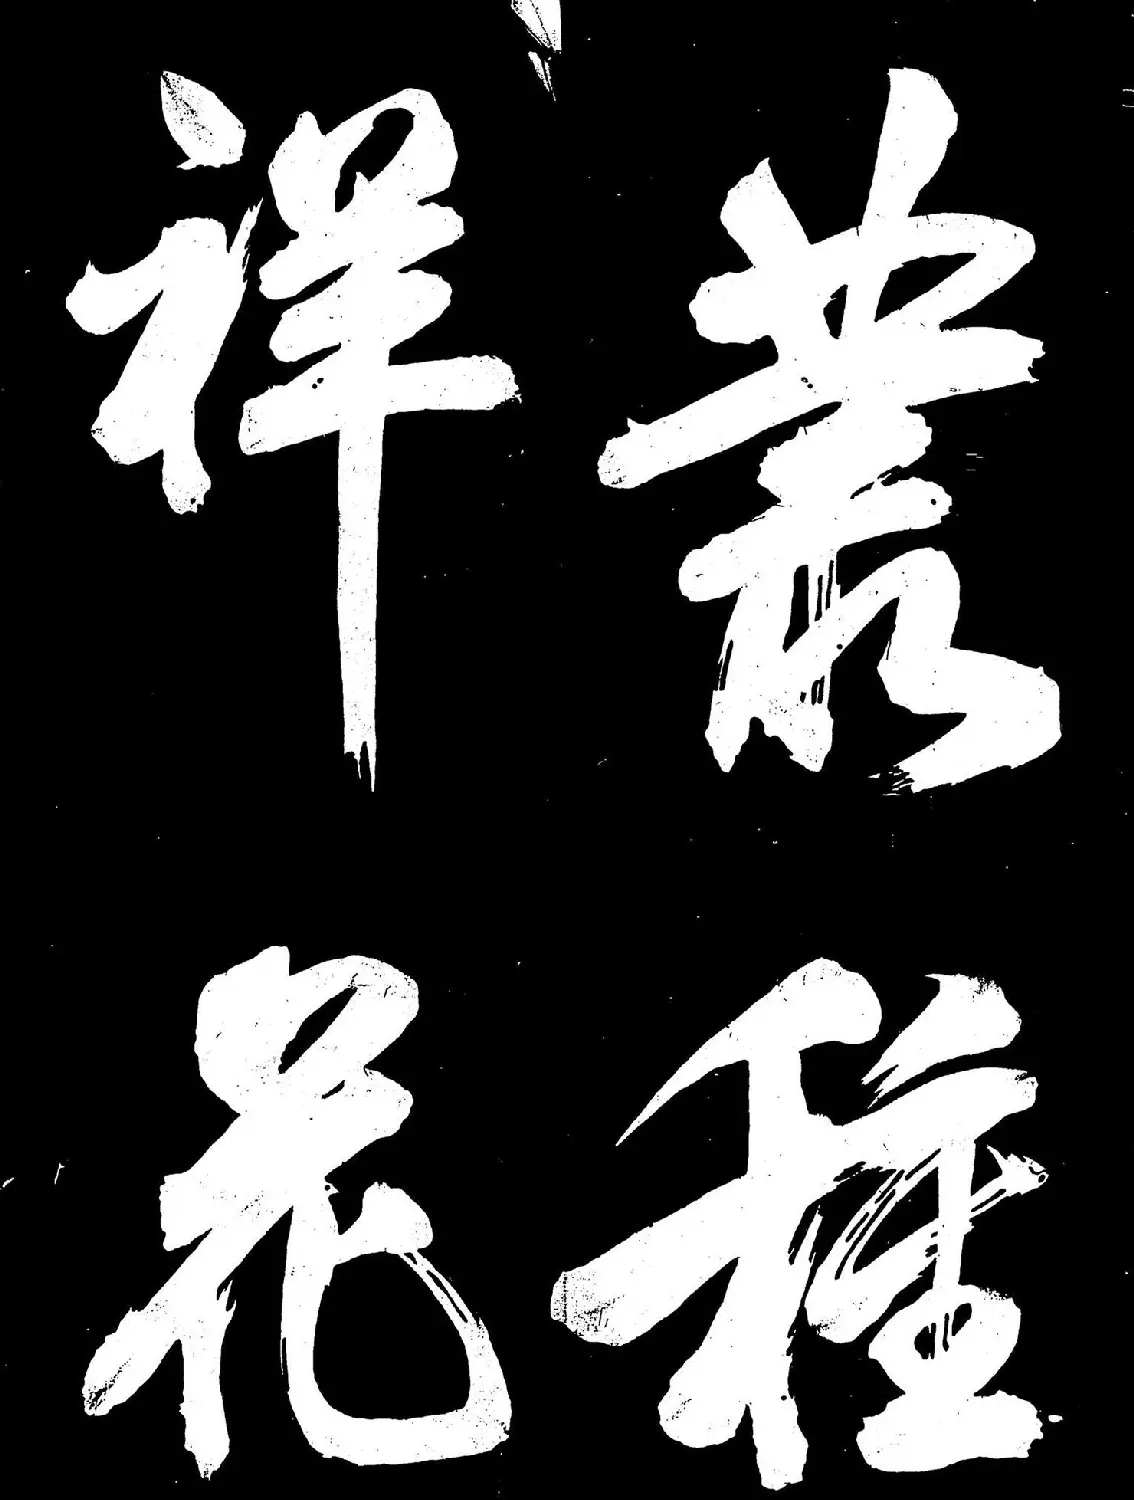 叢種
祥花